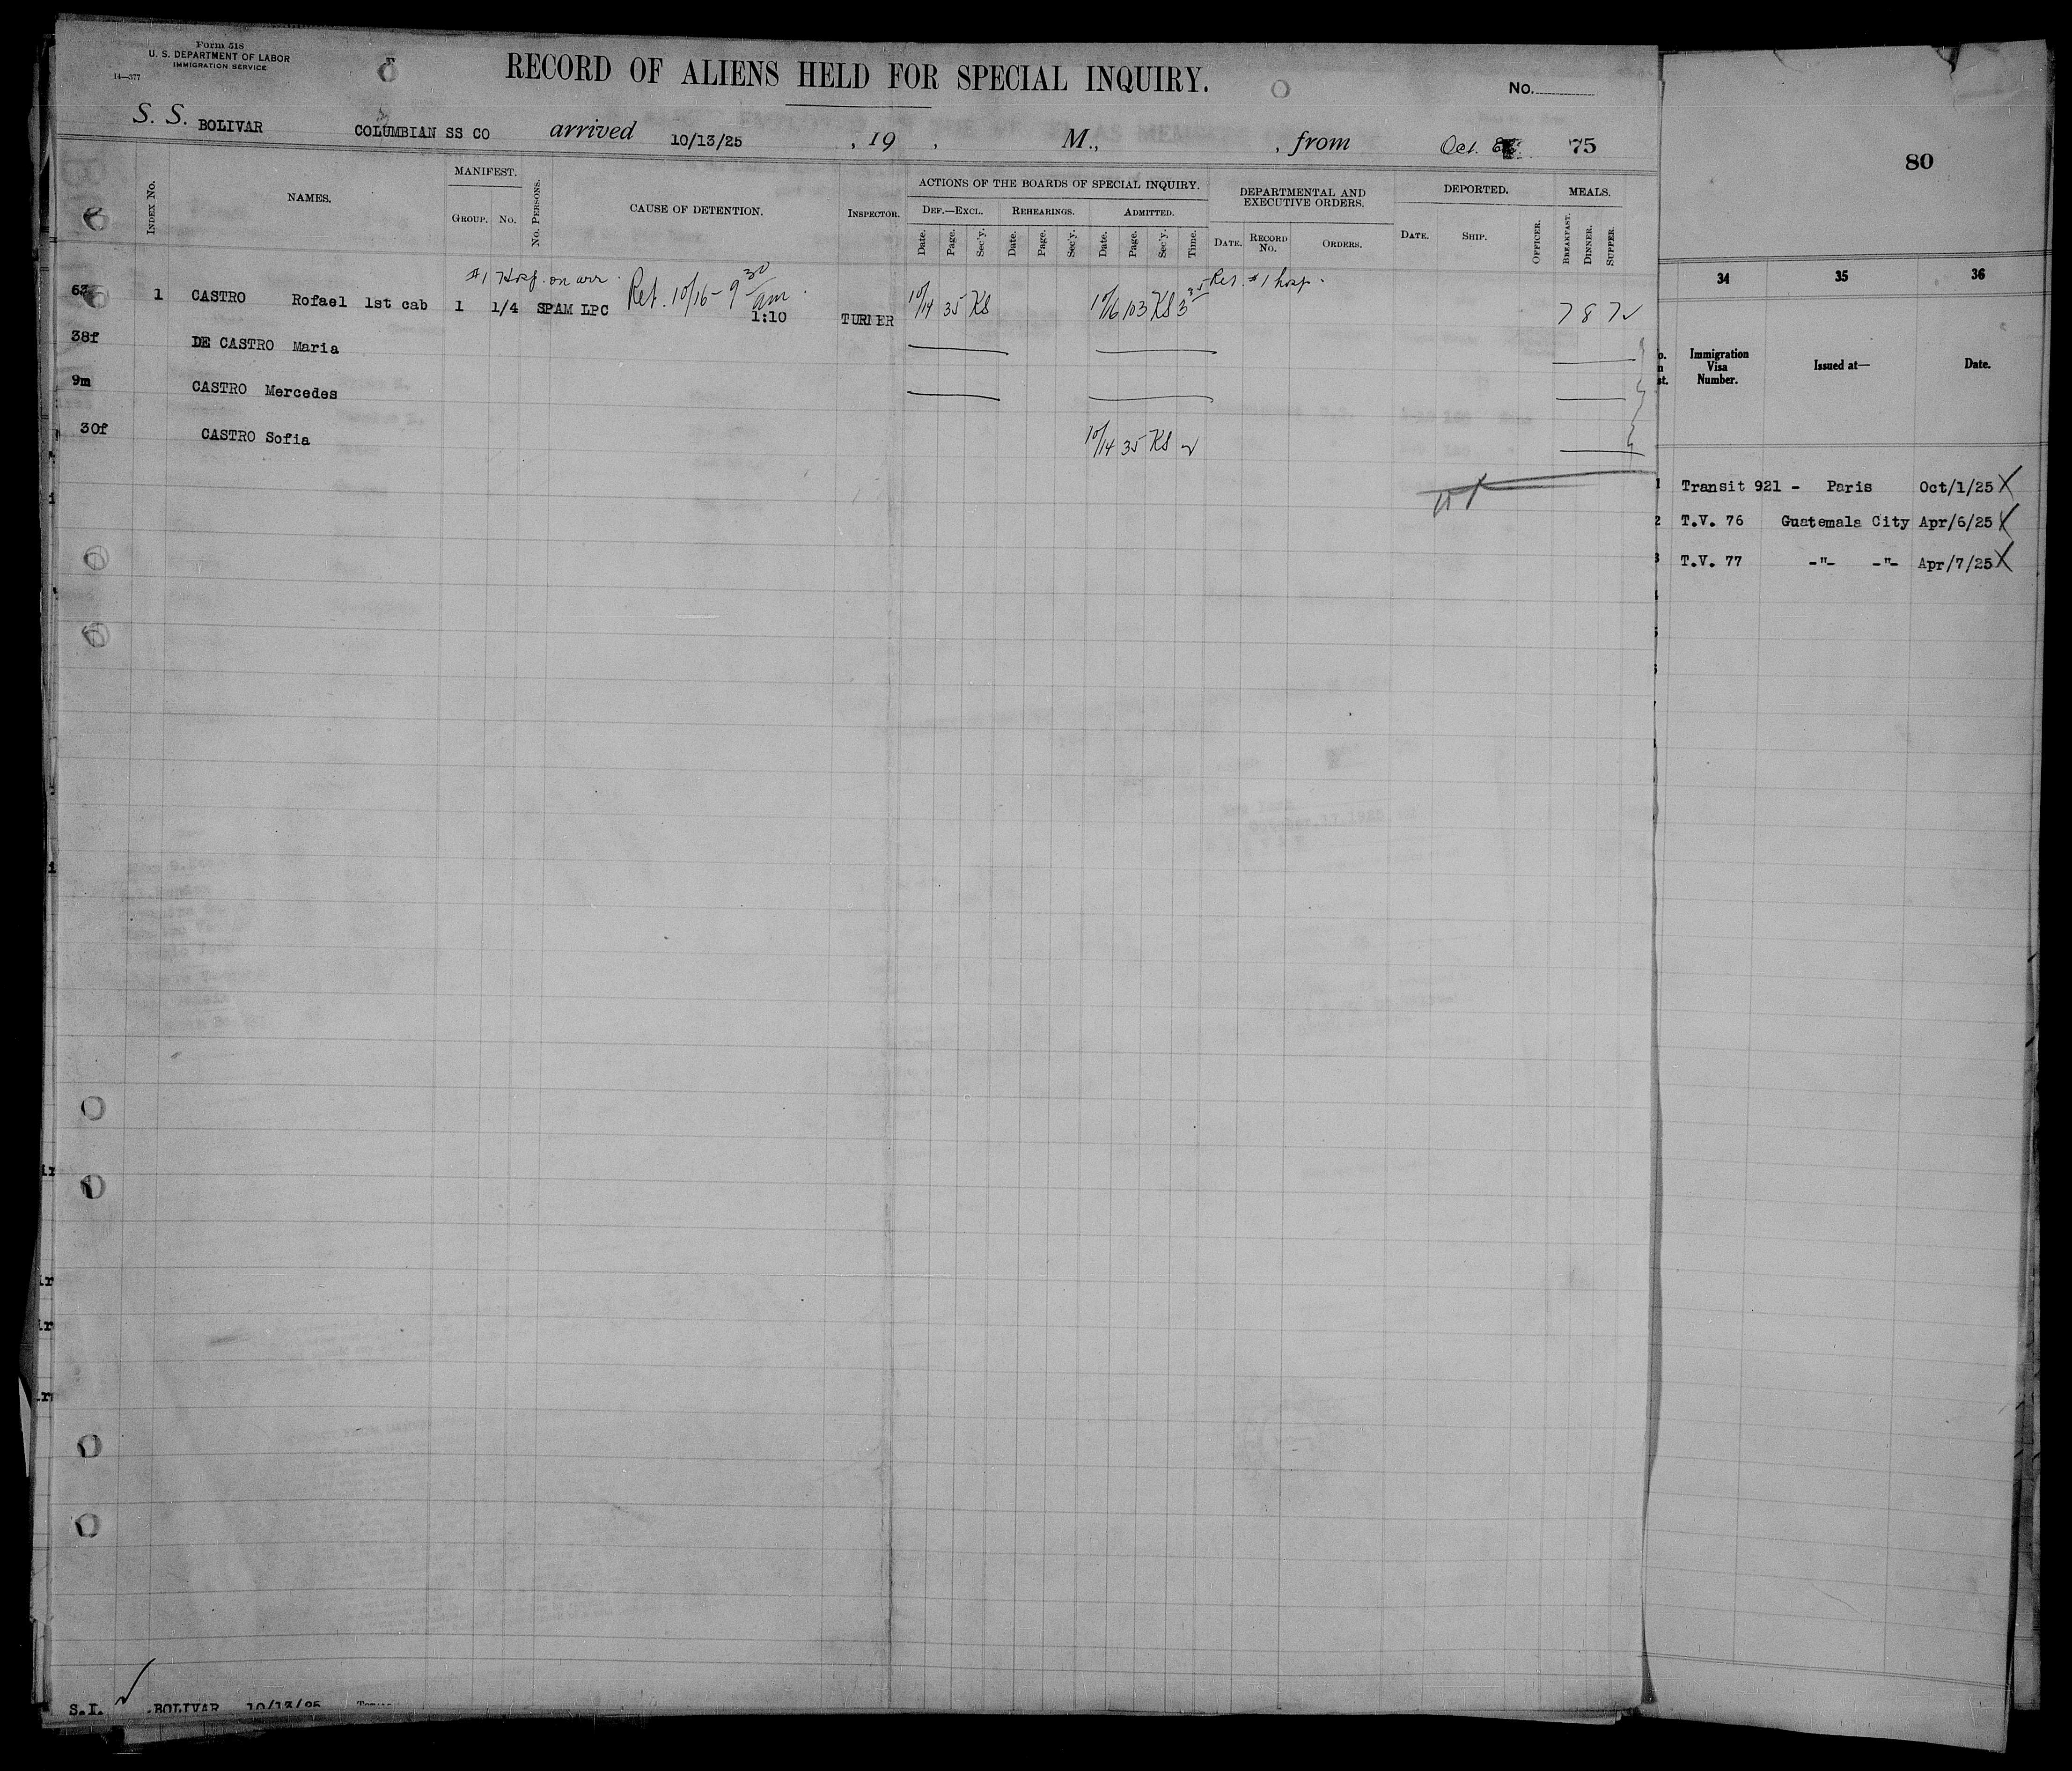 Form 518
U. S. DEPARTMENT OF LABOR
IMMIGRATION SERVICE
14—377
RECORD OF ALIENS HELD FOR SPECIAL INQUIRY.
No.
S. S. BOLIVAR COLUMBIAN SS CO arrived 10/13/25 , 19 , M., , from Oct. 75
INDEX No.
NAMES.
MANIFEST.
GROUP. No.
No. PERSONS.
CAUSE OF DETENTION.
INSPECTOR.
ACTIONS OF THE BOARDS OF SPECIAL INQUIRY.
DEF.—EXCL. REHEARINGS. ADMITTED.
Date. Page. Sec'y. Date. Page. Sec'y. Date. Page. Sec'y. Time.
DEPARTMENTAL AND EXECUTIVE ORDERS.
DATE. RECORD No. ORDERS.
DEPORTED.
DATE. SHIP. OFFICER.
MEALS.
BREAKFAST. DINNER. SUPPER.
#1 Hosp. on arr. Ret. 10/16 - 9 30 am. Res. #1 hosp.
1 CASTRO Rofael 1st cab 1 1/4 SPAM LPC 1:10 TURNER 10/14 35 KS 10/16 103 KS 3 35 7 8 7
38f DE CASTRO Maria
9m CASTRO Mercedes
30f CASTRO Sofia 10/14 35 KS
S.I. BOLIVAR 10/13/25
80
34 35 36
Immigration Visa Number. Issued at— Date.
1 Transit 921 - Paris Oct/1/25 X
2 T.V. 76 Guatemala City Apr/6/25 X
3 T.V. 77 -"- -"- Apr/7/25 X